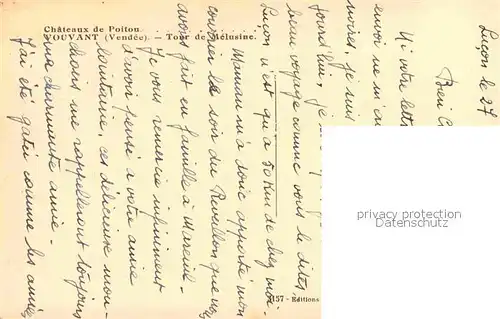 Châteaux de Poitou
VOUVANT (Vendée). — Tour de Mélusine.
Luçon le 27
Bien C
Ni votre lettre
envoi ne m'a
moires, je suis
jourd'hui, je
beau voyage comme vous le dites,
Luçon n'est qu'à 50 Km de chez moi.
Maman m'a donc apporté mon
courrier le soir du Réveillon que nous
avons fait en famille à Mareuil.
Je vous remercie infiniment
d'avoir pensé à votre amie
lointaine, ces délicieuses mou-
choirs me rappelleront toujours
ma charmante amie.
J'ai été gâtée comme les années
157 - Editions
privacy protection